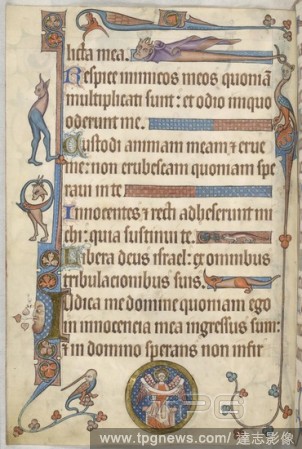 licta mea.
Respice inimicos meos quoniā
multiplicati sunt: et odio iniquo
oderunt me.
Custodi animam meam ⁊ erue
me: non erubescam quoniam spe
raui in te
Innocentes ⁊ recti adheserunt mi
chi: quia sustinui te.
Libera deus israel: ex omnibus
tribulacionibus suis.
Iudica me domine quoniam ego
in innocencia mea ingressus sum:
⁊ in domino sperans non infir
www.tpgnews.com/ 達志影像